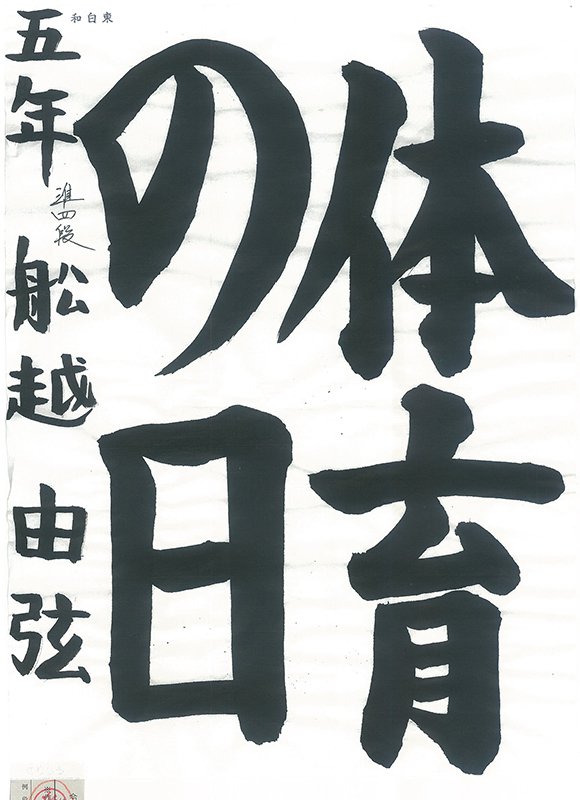 体育
の日
五年 舩越 由弦
準四段
和白東